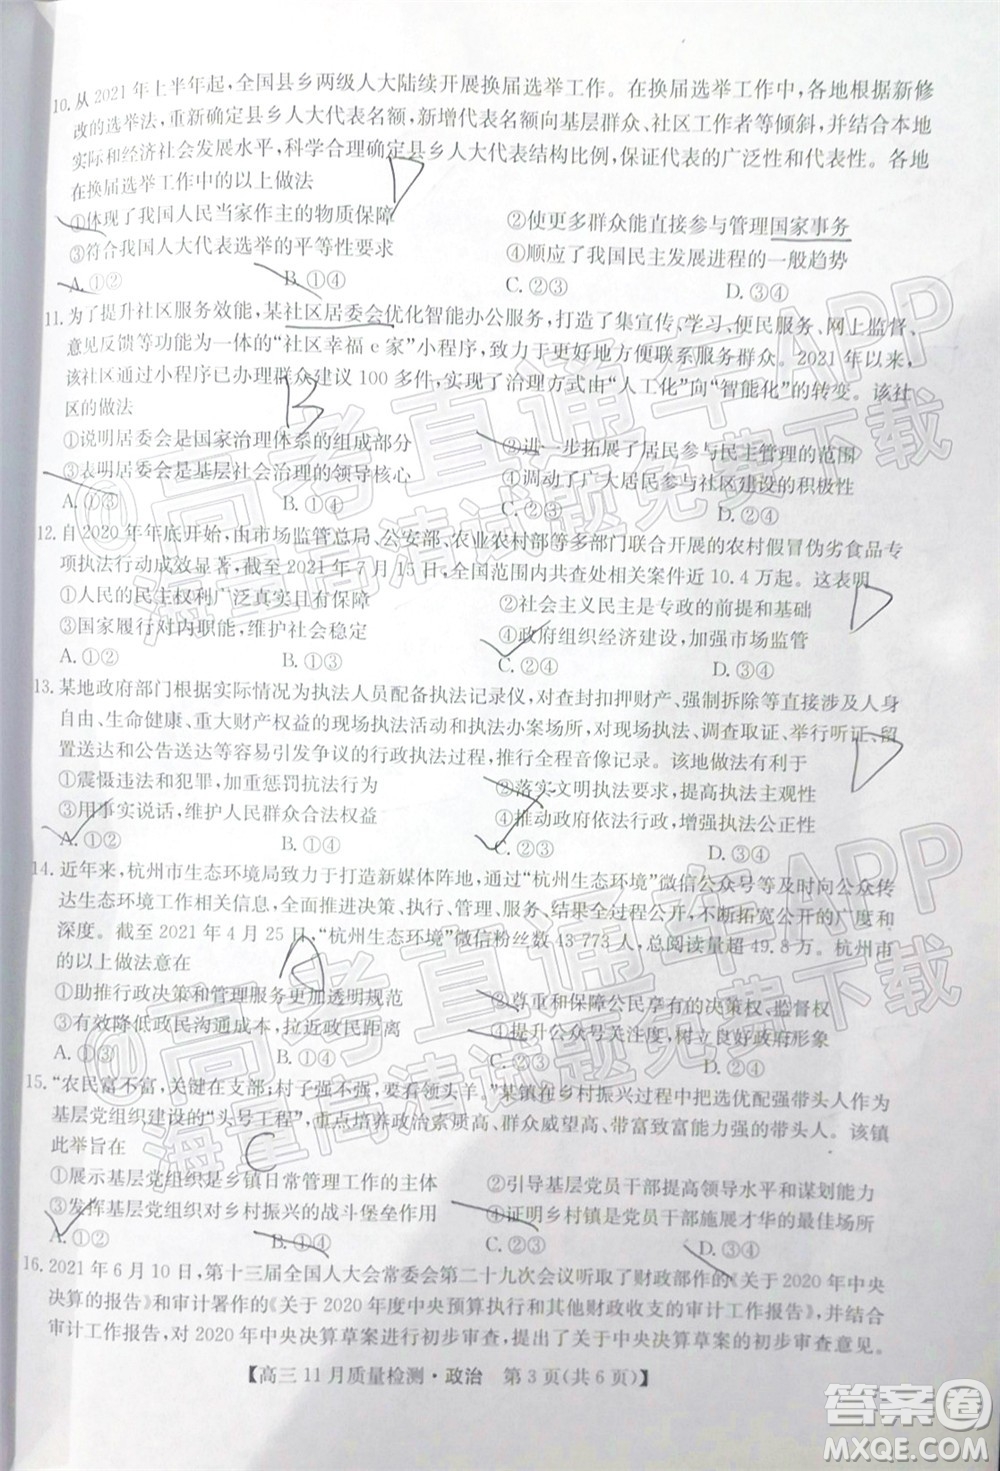 10. 从2021年上半年起，全国县乡两级人大陆续开展换届选举工作。在换届选举工作中，各地根据新修
改的选举法，重新确定县乡人大代表名额，新增代表名额向基层群众、社区工作者等倾斜，并结合本地
实际和经济社会发展水平，科学合理确定县乡人大代表结构比例，保证代表的广泛性和代表性。各地
在换届选举工作中的以上做法
D
①体现了我国人民当家作主的物质保障 ②使更多群众能直接参与管理国家事务
③符合我国人大代表选举的平等性要求 ④顺应了我国民主发展进程的一般趋势
A.①② B.①④ C.②③ D.③④
11. 为了提升社区服务效能，某社区居委会优化智能办公服务，打造了集宣传、学习、便民服务、网上监督、
意见反馈等功能为一体的“社区幸福e家”小程序，致力于更多更好地方便联系服务群众。2021年以来，
该社区通过小程序已办理群众建议100多件，实现了治理方式由“人工化”向“智能化”的转变。该社
区的做法
B
①说明居委会是国家治理体系的组成部分 ②进一步拓展了居民参与管理的范围
③表明居委会是基层社会治理的领导核心 ④调动了广大居民参与社区建设的积极性
A.①③ B.①④ C.②③ D.②④
12. 自2020年年底开始，由市场监管总局、公安部、农业农村部等多部门联合开展的农村假冒伪劣食品专
项执法行动成效显著，截至2021年7月15日，全国范围内共查处相关案件近10.4万起。这表明
D
①人民的民主权利广泛真实且有保障 ②社会主义民主是专政的前提和基础
③国家履行对内职能，维护社会稳定 ④政府组织经济建设，加强市场监管
A.①② B.①③ C.②④ D.③④
13. 某地政府部门根据实际情况为执法人员配备执法记录仪，对查封扣押财产、强制拆除等直接涉及人身
自由、生命健康、重大财产权益的现场执法活动和执法办案场所，对现场执法、调查取证、举行听证、留
置送达和公告送达等容易引发争议的行政执法过程，推行全程音像记录。该地做法有利于
D
①震慑违法和犯罪，加重惩罚抗法行为 ②落实文明执法要求，提高执法主观性
③用事实说话，维护人民群众合法权益 ④推动政府依法行政，增强执法公正性
A.①② B.①④ C.②③ D.③④
14. 近年来，杭州市生态环境局致力于打造新媒体阵地，通过“杭州生态环境”微信公众号等及时向公众传
达生态环境工作信息，全面推进决策、执行、管理、服务、结果全过程公开，不断拓宽公开的广度和
深度。截至2021年4月25日，“杭州生态环境”微信粉丝数43773人，总阅读量超49.8万。杭州市
的以上做法意在
①助推行政决策和管理服务更加透明规范 ②尊重和保障公民享有的决策权、监督权
③有效降低政民沟通成本，拉近政民距离 ④提升公众号关注度，树立良好政府形象
A.①③ B.①④ C.②③ D.②④
15. “农民富不富，关键在支部；村子强不强，要看领头羊。”某镇在乡村振兴中把选优配强带头人作为
基层党组织建设的“头号工程”，重点培养政治素质高、群众威望高、带富致富能力强的带头人。该镇
此举旨在
C
①展示基层党组织是乡镇日常管理工作的主体 ②引导基层党员干部提高领导水平和谋划能力
③发挥基层党组织对乡村振兴的战斗堡垒作用 ④证明乡村镇是党员干部施展才华的最佳场所
A.①② B.①④ C.②③ D.③④
16. 2021年6月10日，第十三届全国人大会常委会第二十九次会议听取了财政部作的《关于2020年中央
决算的报告》和审计署作的《关于2020年度中央预算执行和其他财政收支的审计工作报告》，并结合
审计工作报告，对2020年中央决算草案进行初步审查，提出了关于中央决算草案的初步审查意见。
【高三11月质量检测·政治 第3页(共6页)】
@高考直通车APP
海量高清试题免费下载
@高考直通车APP
海量高清试题免费下载
答案圈
MXQE.COM